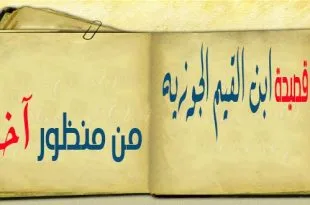 قصيدة ابن القيم الجوزيه
من منظور آخ